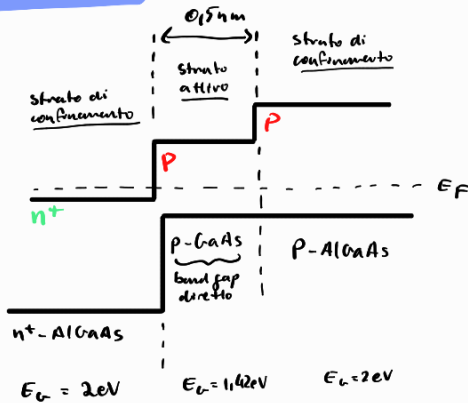 0,5nm
strato di
confinamento
strato
attivo
strato di
confinamento
P
P
n+
EF
p-GaAs
band gap
diretto
P-AlGaAs
n+-AlGaAs
EG = 2eV
EG = 1,42eV
EG = 2eV